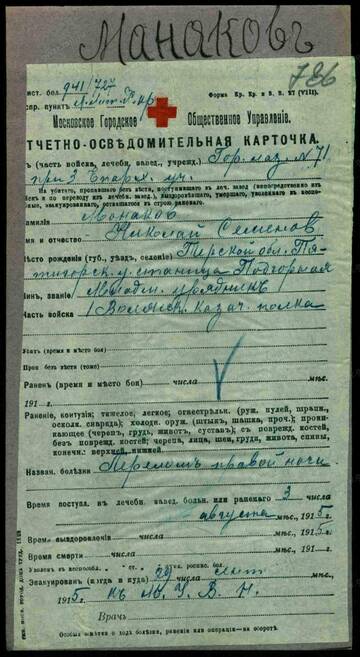 Манаковъ
786
ист. бол. 941/727
Форма Кр. Кр. и В. В. №1 (VIII).
спр. пунктъ
Московское Городское Общественное Управленіе.
ТЧЕТНО-ОСВѢДОМИТЕЛЬНАЯ КАРТОЧКА.
ъ (часть войска, лечебн. завед., учрежд.) Гор. лаз. № 71
при 3 Епарх. уч.
На убитаго, пропавшаго безъ вѣсти, поступившаго въ леч. заведеніе (непосредственно изъ
амилія Монаковъ
мя и отчество Николай Семеновъ
ѣсто рожденія (губ., уѣздъ, селеніе) Терской обл. Пя-
тигорск. у. станица Подгорная
Чинъ, званіе Младш. урядникъ
Часть войска 1 Волжск. Казач. полка
Убитъ (время и мѣсто боя)
Проп. безъ вѣсти (тоже)
Раненъ (время и мѣсто боя) числа мѣс.,
191 г.
Раненіе, контузія: тяжелое, легкое; огнестрѣльн. (руж. пулей, шрапн.,
осколк. снаряда); холодн. оруж. (штыкъ, шашка, проч.); прони-
кающее (черепъ, грудь, животъ, суставъ); съ поврежд. костей,
безъ поврежд. костей; черепа, лица, шеи, груди, живота, спины,
конечн.: верхней, нижней.
Назван. болѣзни Переломъ правой ноги
Время поступл. въ лечебн. завед. больн. или раненаго 3 числа
августа мѣс., 1915 г.
Время выздоровленія мѣс., 191 г.
Время смерти мѣс., 191 г.
Эвакуированъ (когда и куда) 29 числа сент.
1915 къ М. У. В. Н.
Врачъ
Особыя замѣтки о ходѣ болѣзни, раненія или операціи—на оборотѣ.